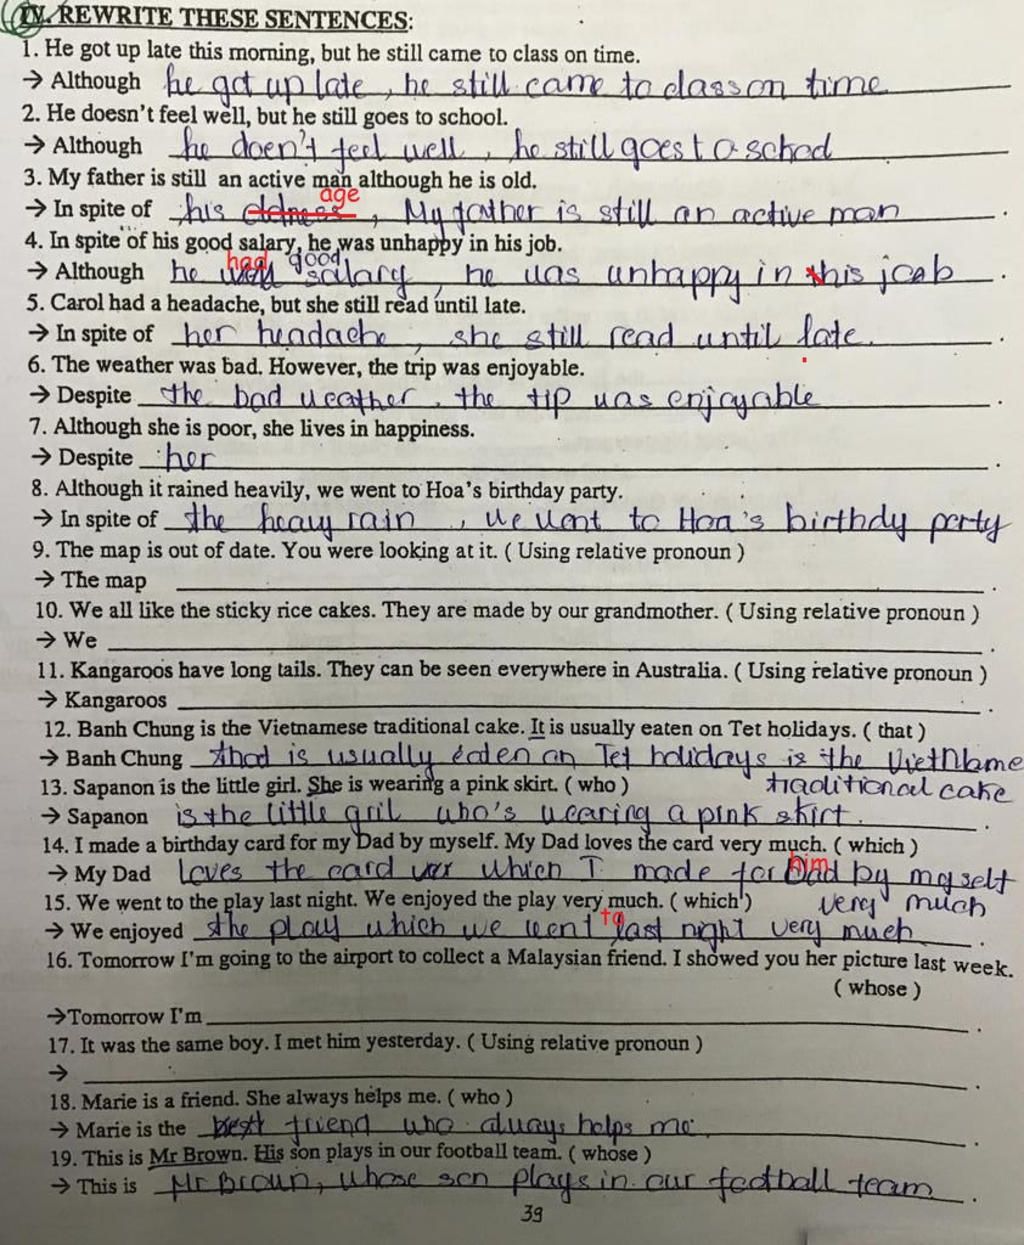 IV. REWRITE THESE SENTENCES:
1. He got up late this morning, but he still came to class on time.
→ Although he got up late, he still came to class on time
2. He doesn't feel well, but he still goes to school.
→ Although he doen't feel well, he still goes to school
3. My father is still an active man although he is old.
age
→ In spite of his oldness, My father is still an active man.
4. In spite of his good salary, he was unhappy in his job.
had good
→ Although he salary, he was unhappy in his job.
5. Carol had a headache, but she still read until late.
→ In spite of her headache, she still read until late.
6. The weather was bad. However, the trip was enjoyable.
→ Despite the bad weather, the tip was enjoyable.
7. Although she is poor, she lives in happiness.
→ Despite her .
8. Although it rained heavily, we went to Hoa's birthday party.
→ In spite of the heavy rain, we went to Hoa's birthdy party
9. The map is out of date. You were looking at it. ( Using relative pronoun )
→ The map .
10. We all like the sticky rice cakes. They are made by our grandmother. ( Using relative pronoun )
→ We .
11. Kangaroos have long tails. They can be seen everywhere in Australia. ( Using relative pronoun )
→ Kangaroos .
12. Banh Chung is the Vietnamese traditional cake. It is usually eaten on Tet holidays. ( that )
→ Banh Chung that is usually eaten on Tet holidays is the VietName
13. Sapanon is the little girl. She is wearing a pink skirt. ( who ) traditional cake
→ Sapanon is the little gril who's wearing a pink skirt.
14. I made a birthday card for my Dad by myself. My Dad loves the card very much. ( which )
him
→ My Dad loves the card which I made for Dad by myself
15. We went to the play last night. We enjoyed the play very much. ( which ) very much
to
→ We enjoyed the play which we went last night very much.
16. Tomorrow I'm going to the airport to collect a Malaysian friend. I showed you her picture last week.
( whose )
→Tomorrow I'm .
17. It was the same boy. I met him yesterday. ( Using relative pronoun )
→ .
18. Marie is a friend. She always helps me. ( who )
→ Marie is the best friend who always helps me.
19. This is Mr Brown. His son plays in our football team. ( whose )
→ This is Mr Brown, whose son plays in our football team.
39